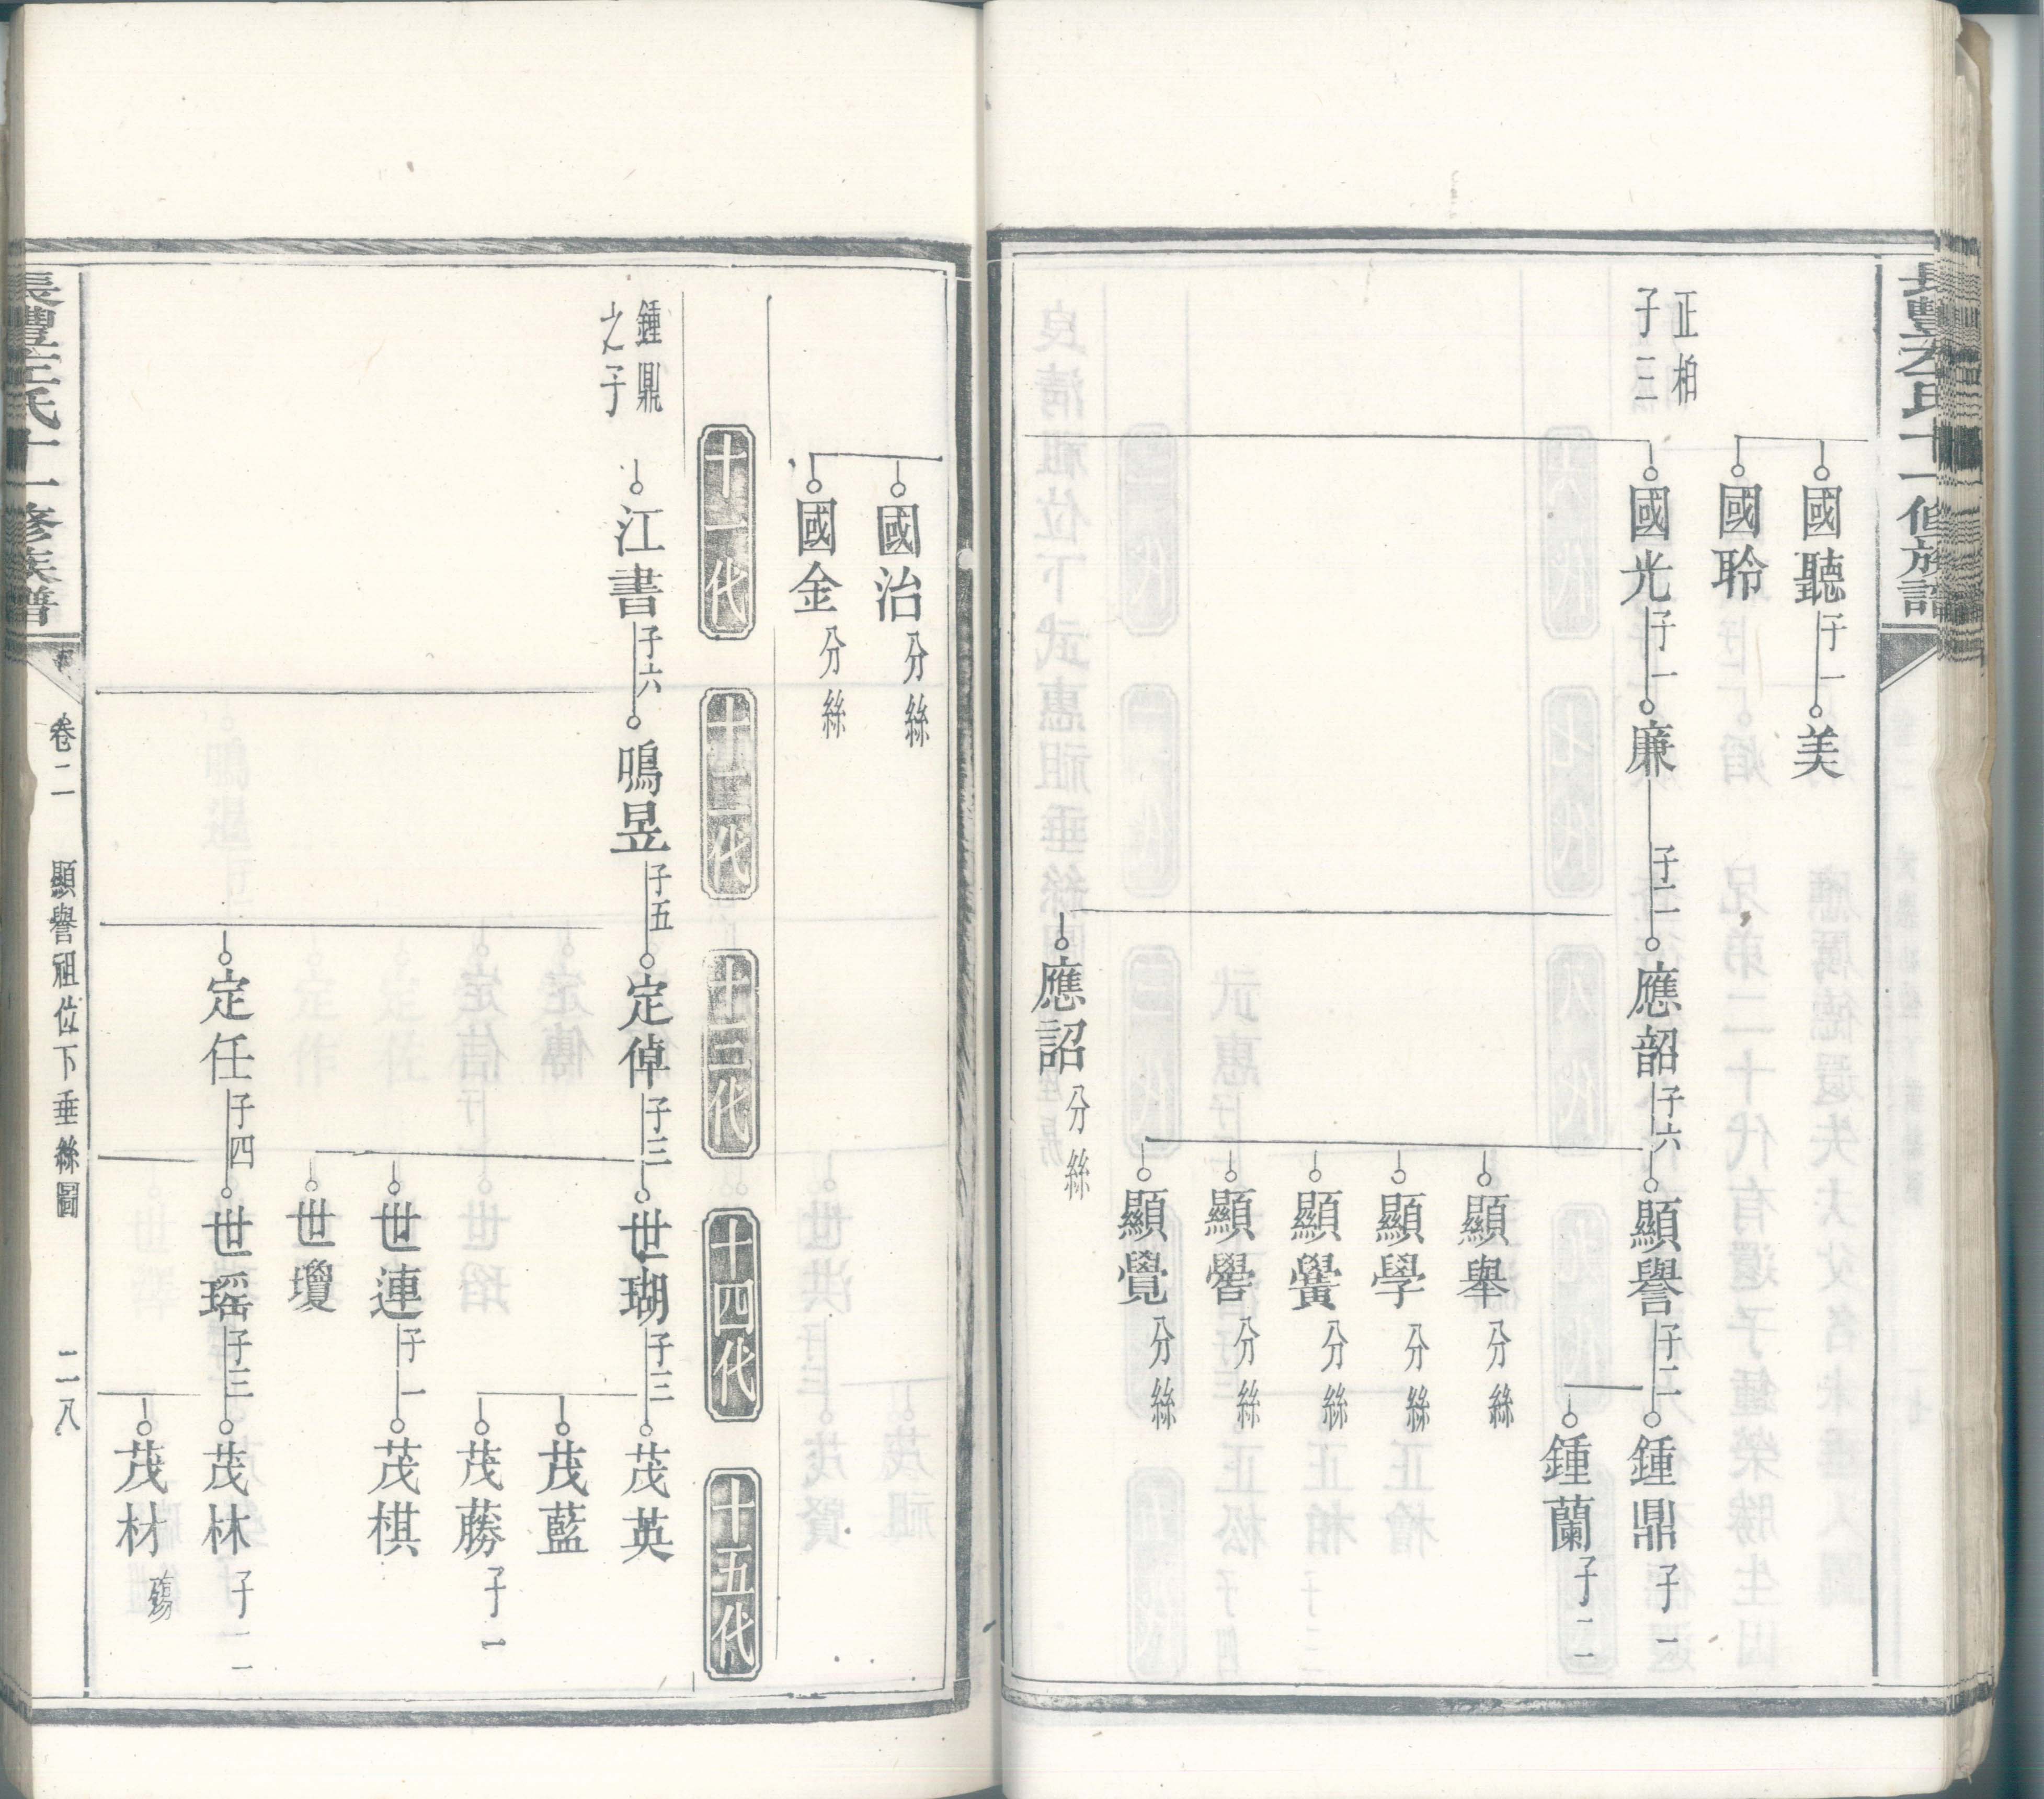 正柏
子三
國聽子一
美
國聆
國光子一
廉子二
應韶子六
顯譽子二
鍾鼎子一
鍾蘭子二
顯舉分絲
顯學分絲
顯黌分絲
顯嚳分絲
顯覺分絲
應詔分絲
國治分絲
國金分絲
十一代
十二代
十三代
十四代
十五代
鍾鼎
之子
江書子六
鳴昱子五
定倬子三
世瑚子三
茂英
茂藍
茂勝子一
世連子一
茂棋
世瓊
定任子四
世瑶子三
茂林子二
茂材殤
氏十一修族譜
卷二
顯譽祖位下垂絲圖
二八